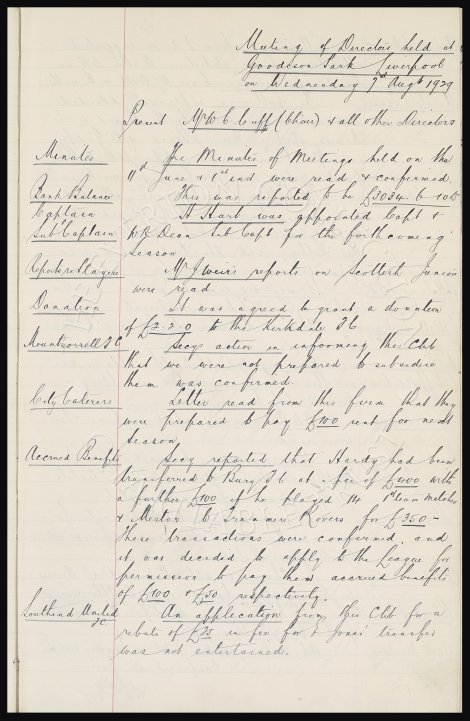 Meeting of Directors held at
Goodison Park Liverpool
on Wednesday 7th Augt 1929
Present Mr W C Cuff (Chair) & all other Directors
Minutes
The Minutes of Meetings held on the
11th June & 1st inst were read & confirmed.
Bank Balance
This was reported to be £2034. 6. 10 Dr
Captain
Sub Captain
H Hart was appointed Capt &
W R Dean Sub Capt for the forthcoming
season
Reports re Players
Mr J Weir's reports on Scottish Juniors
were read.
Donation
It was agreed to grant a donation
of £2.2.0 to the Kirkdale FC
Mountsorrell FC
Secy action in informing this Club
that we were not prepared to subsidise
them was confirmed.
City Caterers
Letter read from this firm that they
were prepared to pay £100 rent for next
season.
Accrued Benefits
Secy reported that Hardy had been
transferred to Bury FC at a fee of £400 with
a further £100 if he played 14 1st team matches
& Meston to Tranmere Rovers for £350 -
These transactions were confirmed and
it was decided to apply to the League for
permission to pay them accrued benefits
of £100 & £50 respectively.
Southend United
FC
An application from this Club for a
rebate of £25 in fee for Jones' transfer
was not entertained.